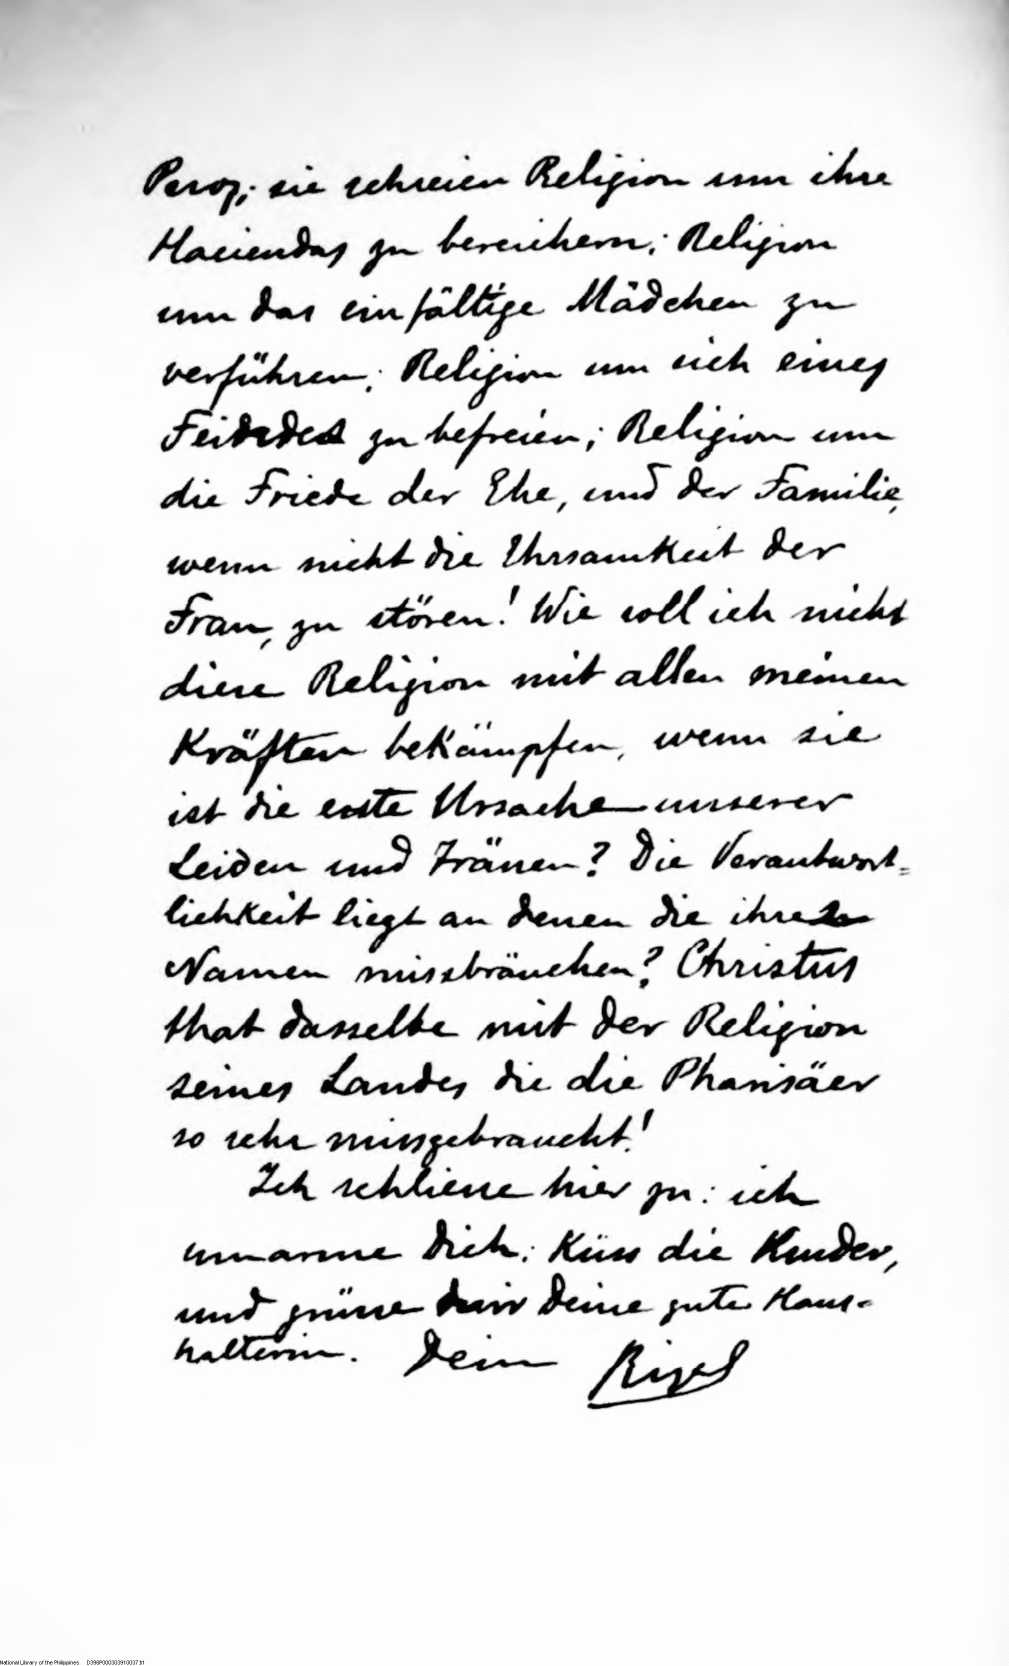 Pesos; sie schreien Religion um ihre
Haciendas zu bereichern; Religion
um das einfältige Mädchen zu
verführen; Religion um sich eines
Feindes zu befreien; Religion um
die Friede der Ehe, und der Familie,
wenn nicht die Ehrsamkeit der
Frau, zu stören! Wie soll ich nicht
diese Religion mit allen meinen
Kräften bekämpfen, wenn sie
ist die erste Ursache unserer
Leiden und Tränen? Die Verantwort=
lichkeit liegt an denen die ihre
Namen missbräuchen? Christus
that dasselbe mit der Religion
seines Landes die die Pharisäer
so sehr missgebraucht!
Ich schliesse hier zu: ich
umarme Dich: Küss die Kinder,
und grüsse Deine gute Haus-
halterin. Dein Rizal
National Library of the Philippines